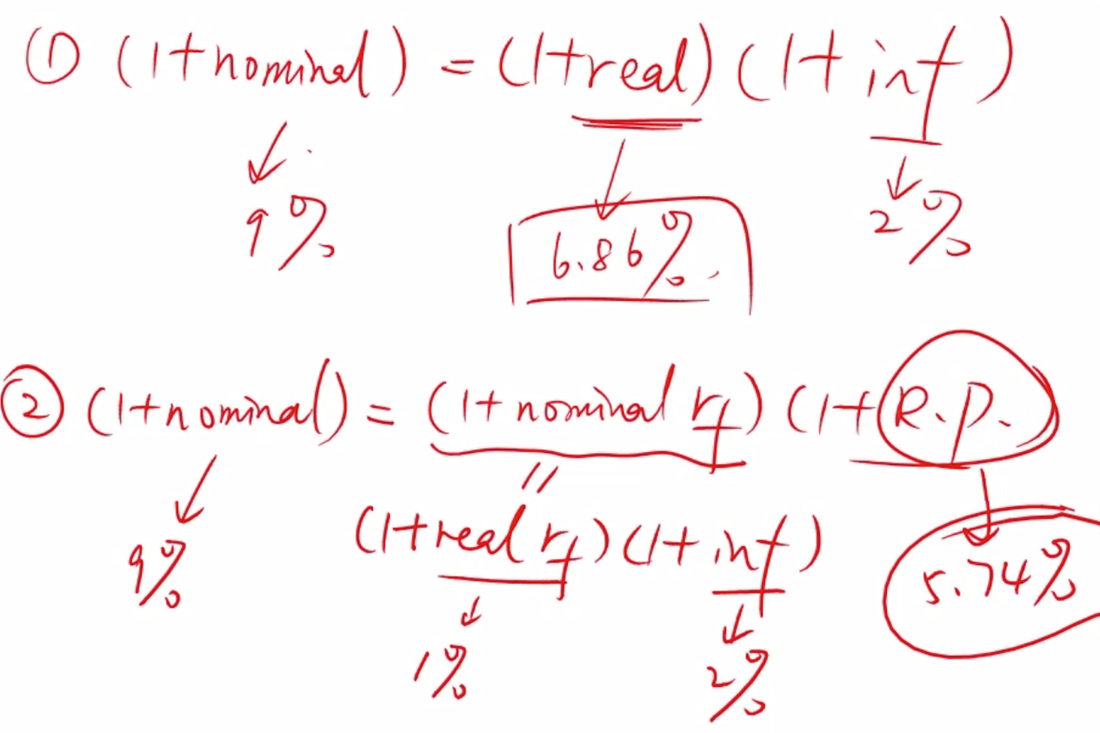 ① (1+nominal) = (1+real) (1+inf)
9% 6.86% 2%
② (1+nominal) = (1+nominal rf) (1+R.P.)
(1+real rf) (1+inf)
9% 5.74%
1% 2%